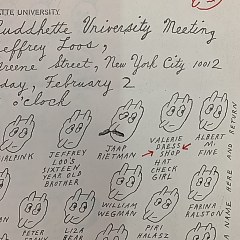 TTE UNIVERSITY.
Buddhette University Meeting
Jeffrey Loos,
reene Street, New York City 10012
day, February 2
o'clock
GIRLPINK
JEFFREY LOO'S SIXTEEN YEAR OLD BROTHER
JAAP RIETMAN
VALERIE DRESS SHOP HAT CHECK GIRL
ALBERT M. FINE
WILLIAM WEGMAN
FABINA RALSTON
PETER
LIZA BEAR
PIRI HALASZ
NAME HERE AND RETURN